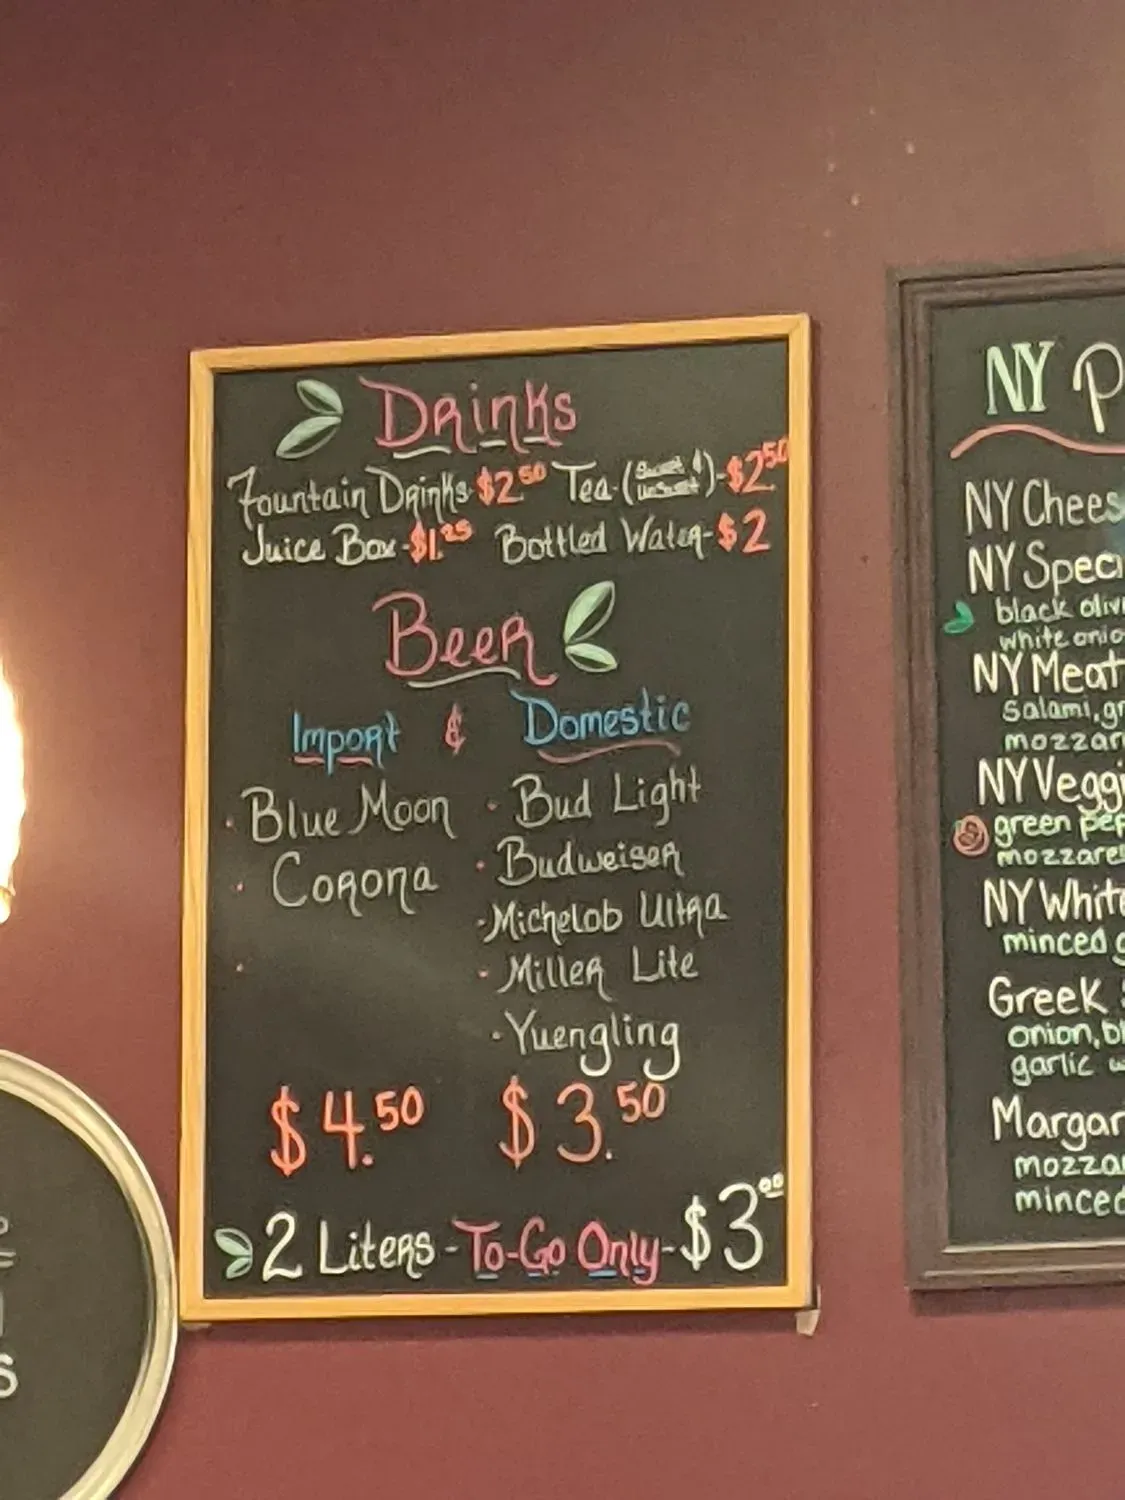 Drinks
Fountain Drinks $2.50 Tea-(Sweet & UnSweet)-$2.50
Juice Box-$1.25 Bottled Water-$2
Beer
Import & Domestic
· Blue Moon · Bud Light
· Corona · Budweiser
· Michelob Ultra
· Miller Lite
· Yuengling
$4.50 $3.50
2 Liters - To-Go Only - $3.00
NY P
NY Chees
NY Speci
black oliv
white onio
NY Meat
Salami, gr
mozzar
NY Veggi
green pep
mozzare
NY White
minced g
Greek S
onion, bl
garlic w
Margar
mozza
minced
s